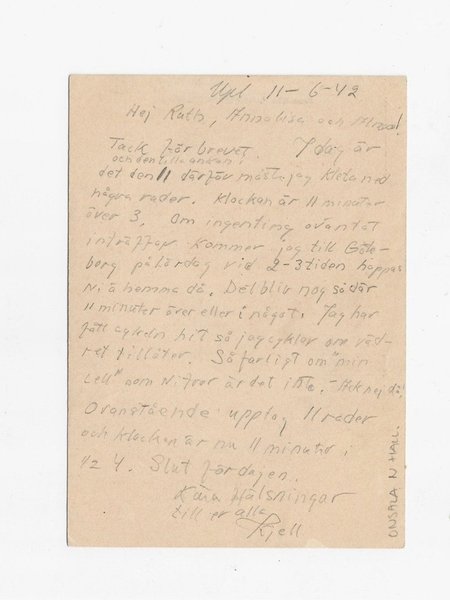 Upl 11-6-42
Hej Ruth, Annalisa och Mosse!
Tack för brevet. I dag är
och den lilla ankan!
det den 11 därför måste jag kleta ned
några rader. Klockan är 11 minuter
över 3. Om ingenting oväntat
inträffar kommer jag till Göte-
borg på lördag vid 2-3 tiden hoppas
Ni ä hemma då. Det blir nog så där
11 minuter över eller i något. Jag har
fått cykeln hit så jag cyklar om väd-
ret tillåter. Så farligt om "min
Lell" som Ni tror är det inte. Ack nej då!
Ovanstående upptog 11 rader
och klockan är nu 11 minuter i
1/2 4. Slut för dagen.
Kära Hälsningar
till er alla
Kjell
ONSALA N HALL.